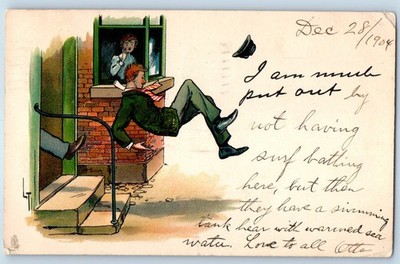 Dec 28/1904
I am much
put out by
not having
surf bathing
here, but then
they have a swimming
tank hear with warmed sea
water. Love to all Otto
LT